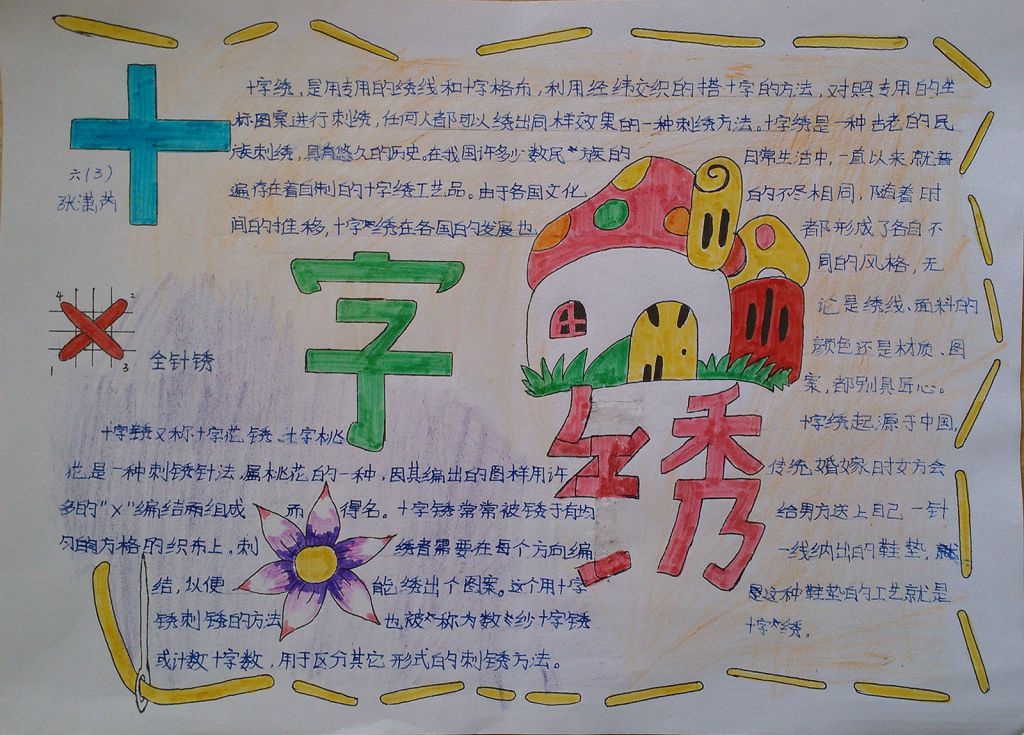 十字绣
六(3)
张潇芮
十字绣，是用专用的绣线和十字格布，利用经纬交织的搭十字的方法，对照专用的坐
标图案进行刺绣，任何人都可以绣出同样效果的一种刺绣方法。十字绣是一种古老的民
族刺绣，具有悠久的历史。在我国许多少数民族的日常生活中，一直以来就普
遍存在着自制的十字绣工艺品。由于各国文化的不尽相同，随着时
间的推移，十字绣在各国的发展也都形成了各自不
同的风格，无
论是绣线、面料的
颜色还是材质、图
案，都别具匠心。
十字绣起源于中国，
传统婚嫁时女方会
给男方送上自己一针
一线纳出的鞋垫，就
是这种鞋垫的工艺就是
十字绣。
4 2
1 3
全针锈
十字锈又称十字花锈、十字桃
花是一种刺锈针法，属桃花的一种，因其编出的图样用许
多的"×"编结两组成而得名。十字锈常常被锈于有均
匀的方格的织布上。刺绣者需要在每个方向编
结，以便能绣出个图案。这个用十字
锈刺锈的方法也被称为数纱十字锈
或计数十字数，用于区分其它形式的刺锈方法。